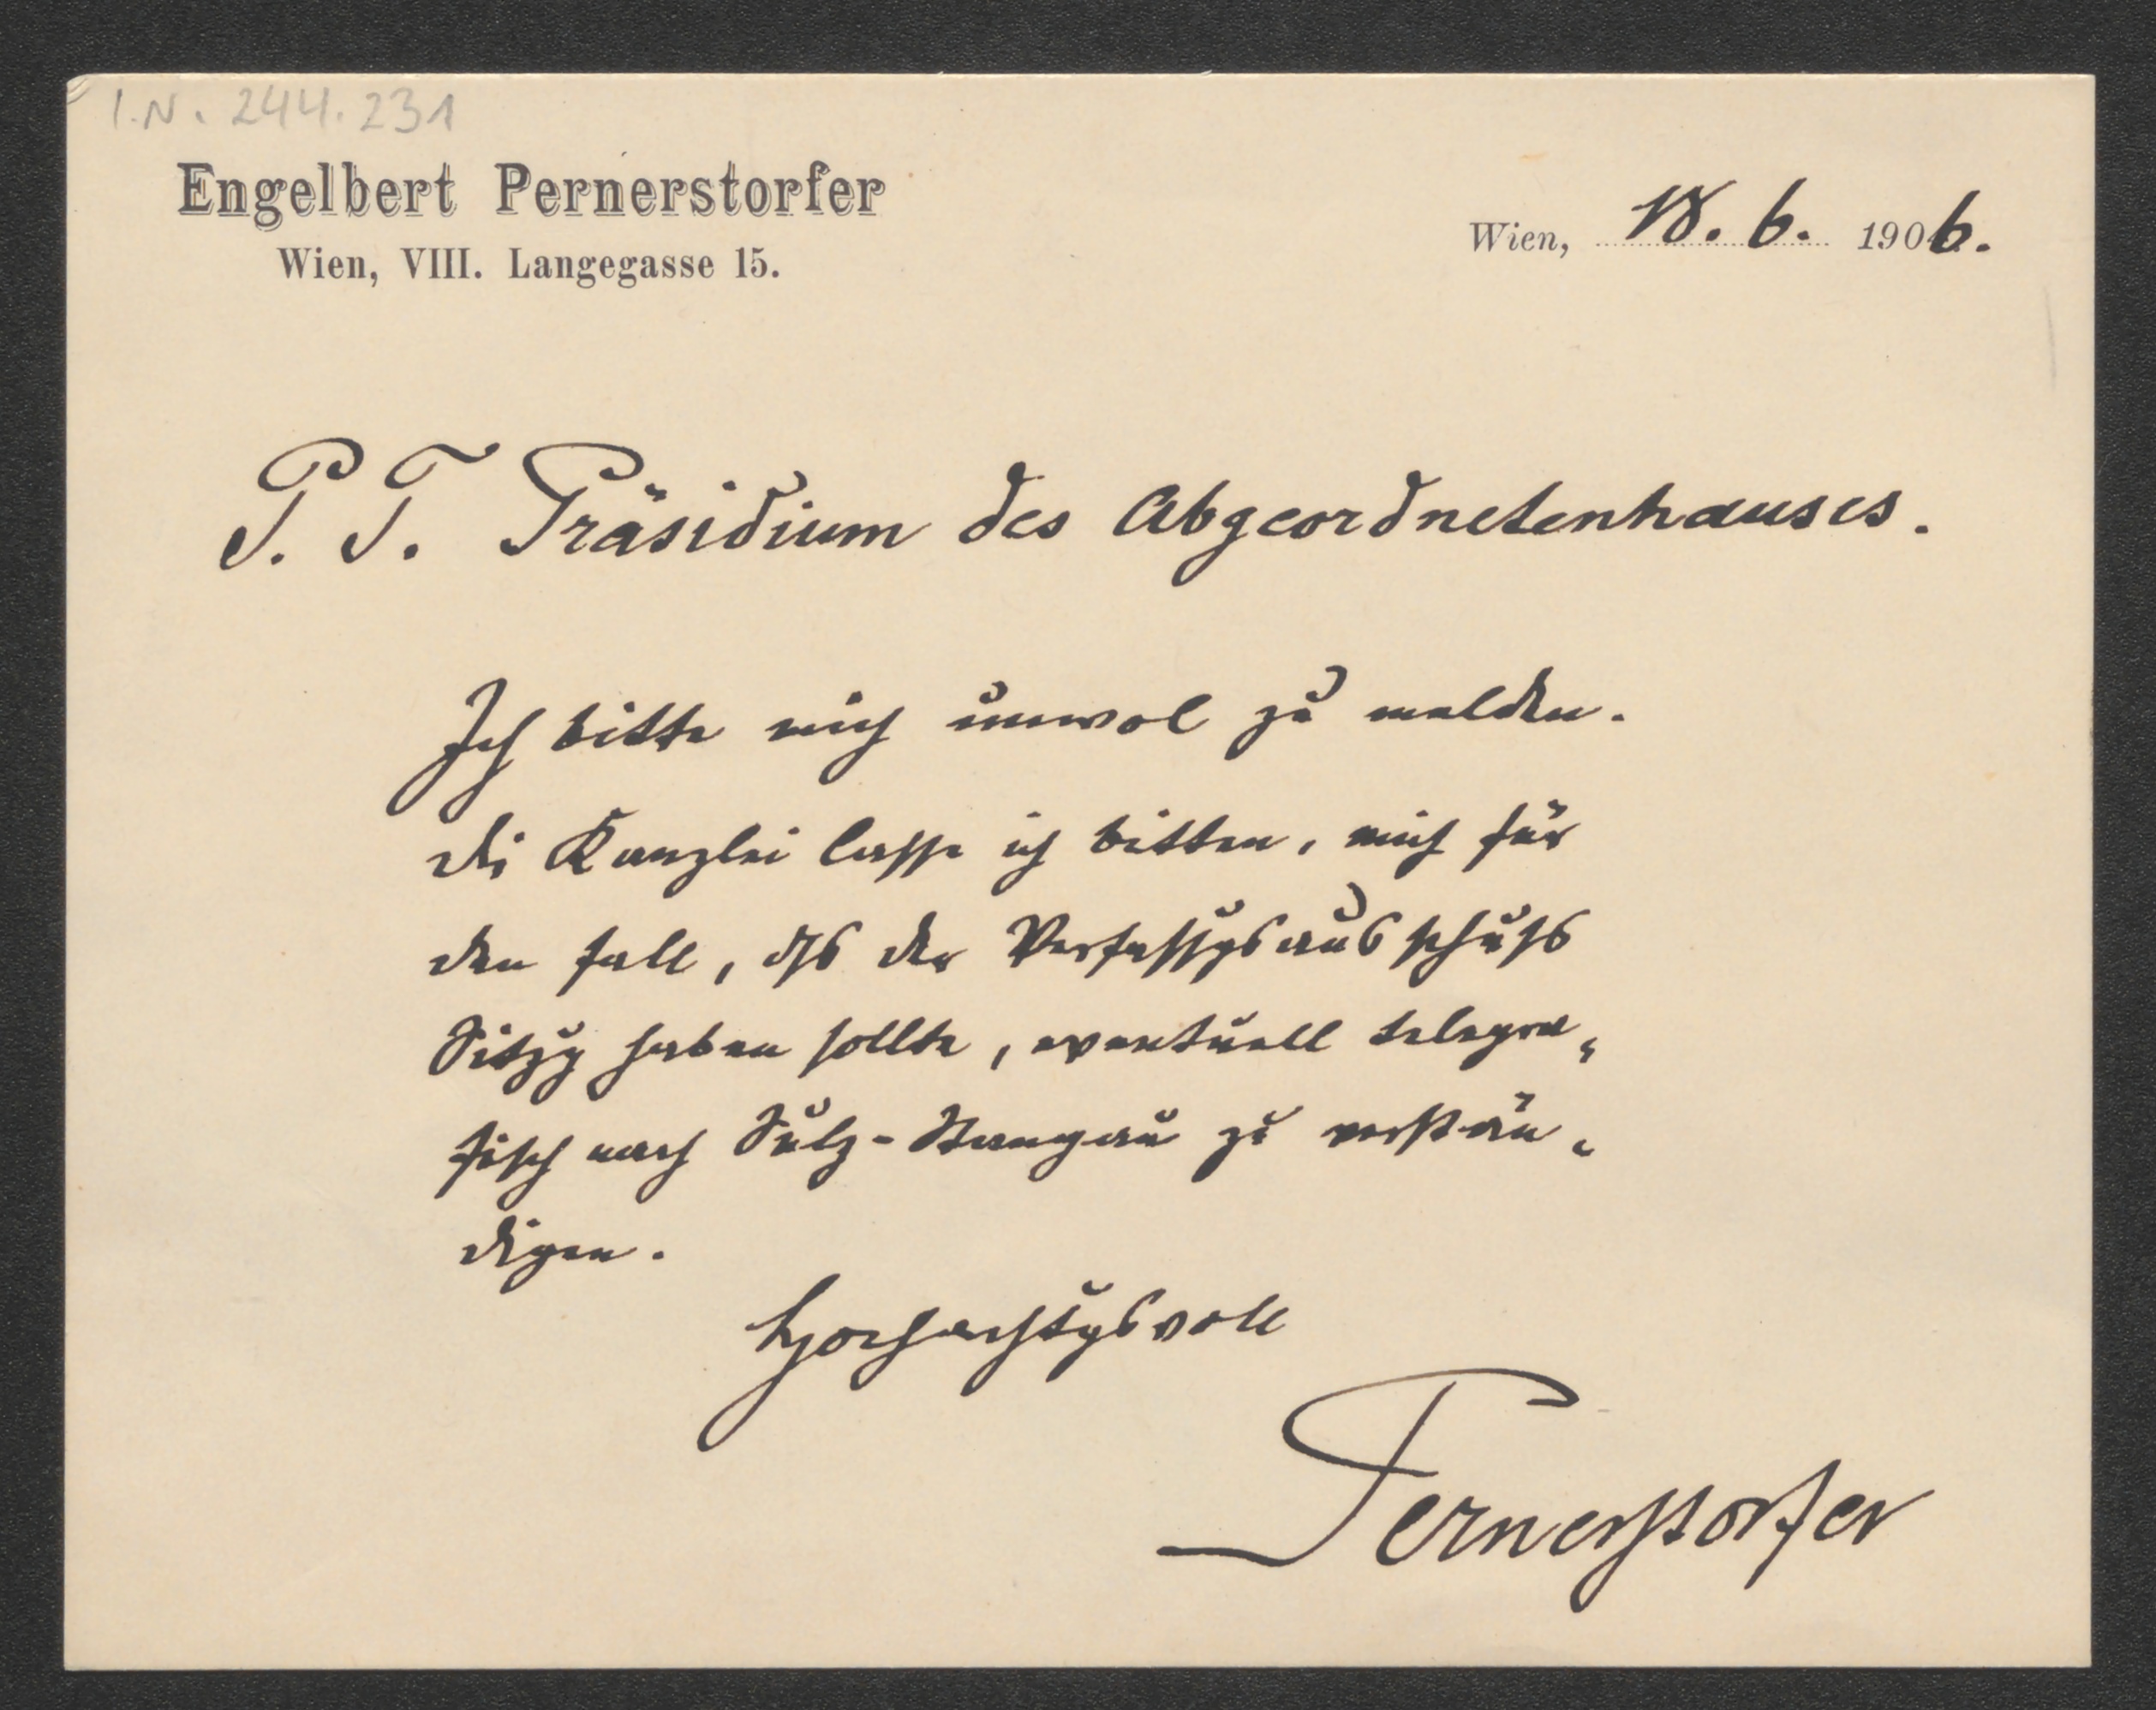 I.N. 244.231
Engelbert Pernerstorfer
Wien, VIII. Langegasse 15.
Wien, 18. 6. 1906.
P. T. Präsidium des Abgeordnetenhauses.
Ich bitte mich unwol zu melden.
Di Kanzlei lasse ich bitten, mich für
den Fall, dß der Verfassgsausschuß
Sitzg haben sollte, eventuell telegra-
fisch nach Sulz-Stangau zu verstän-
digen.
Hochachtgsvoll
Pernerstorfer